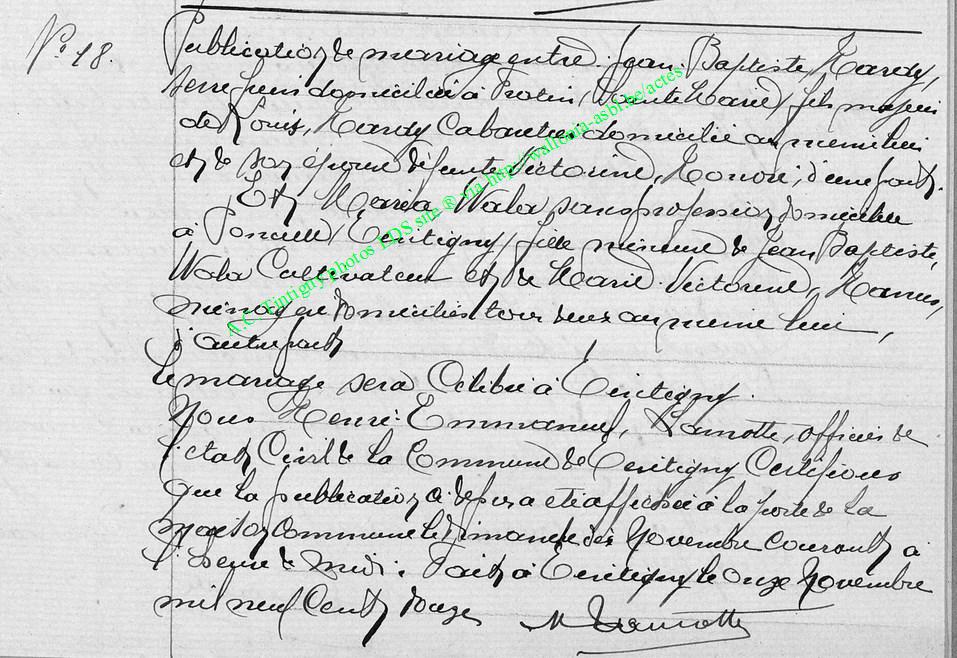 No 18.
Publication de mariage entre: Jean Baptiste, Hardy,
domicilié à (Sainte Marie) fils majeur
de Louis, Hardy Cabaretier domicilié au même lieu
et de son épouse défunte Victorine, d'une part.
Et Maria Wala, sans profession domiciliée
à Poncelle (Tintigny) fille mineure de Jean Baptiste,
Wala Cultivateur et de Marie Victorine, Hamus,
ménagère domiciliés tous deux au même lieu,
d'autre part
Le mariage sera Célébré à Tintigny.
Nous Henri Emmanuel, Lamotte, officier de
l'état Civil de la Commune de Tintigny Certifions
que la publication ci dessus a été affichée à la porte de la
maison Commune le Dimanche dix Novembre courant à
l'heure de midi. Fait à Tintigny le onze Novembre
mil neuf Cent douze
Lamotte
A.C. Tintigny photos EDS site ® via http://wallonia-asbl.be/actes